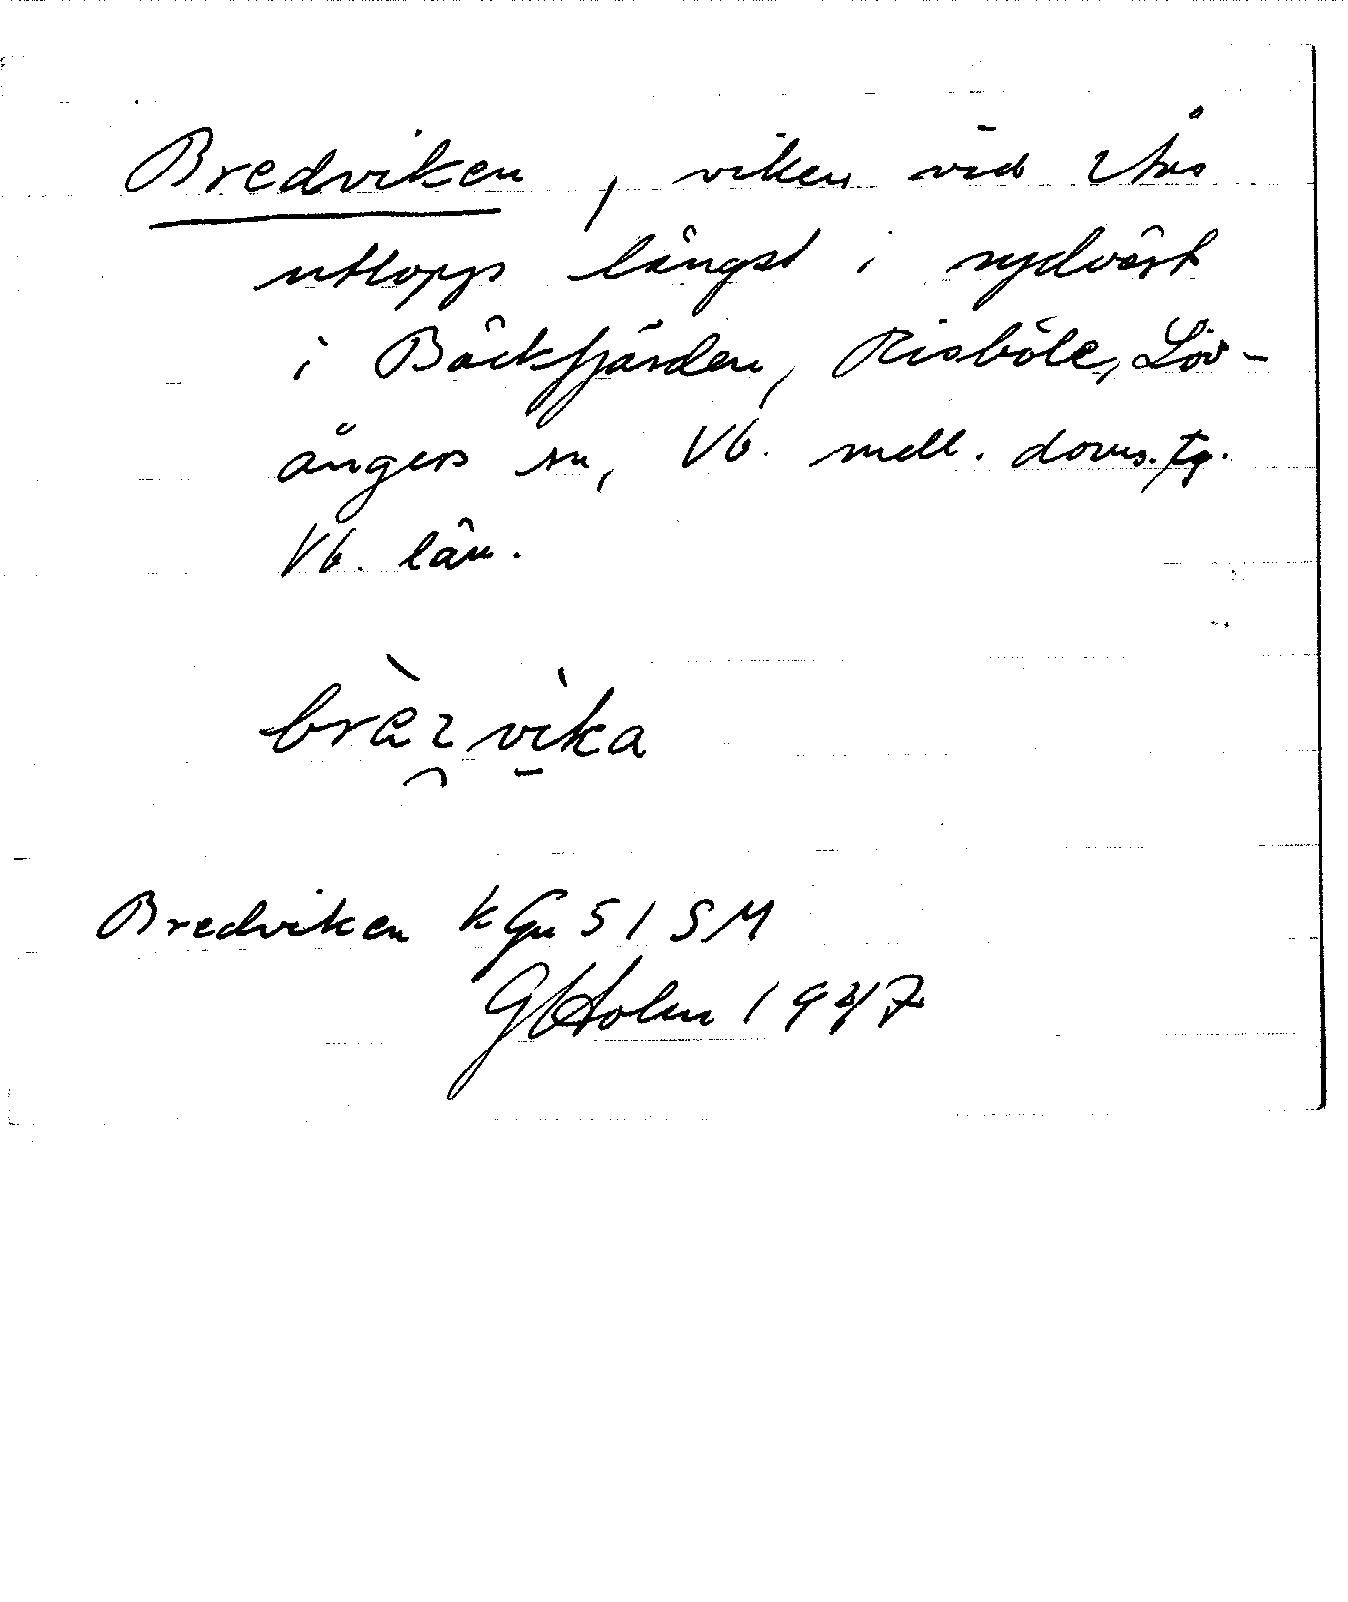 Bredviken, viken vid Åns
utlopp längst i sydväst
i Bäckfjärden, Risböle, Löv-
ångers sn, Vb. mell. doms. tg.
Vb. län.
brèvìka
Bredviken k Gu 51 SM
G Holm 1947